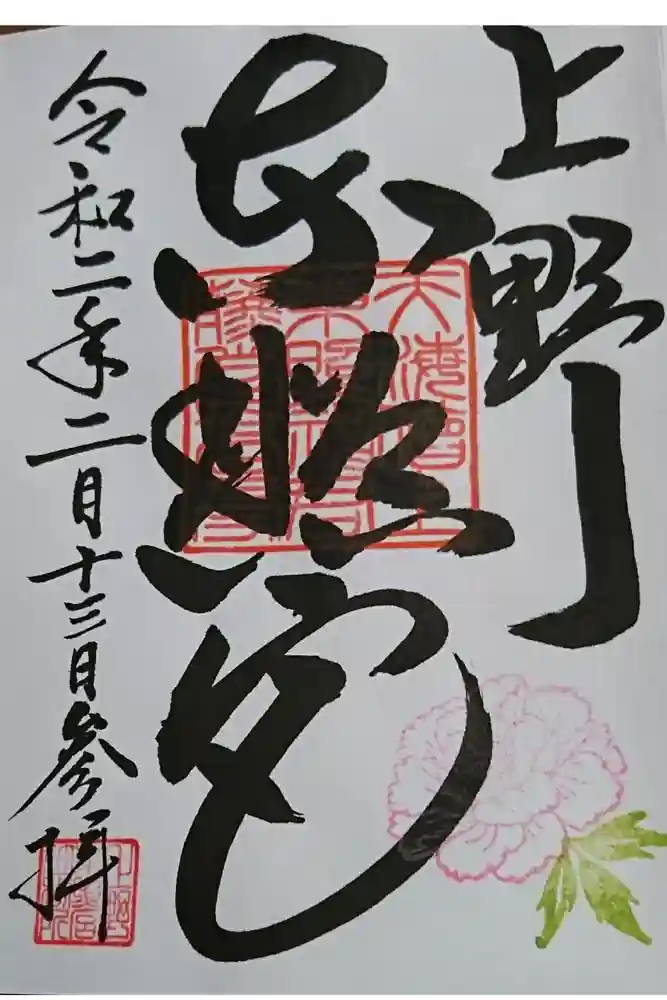 上野
東照宮
令和二年二月十三日参拝